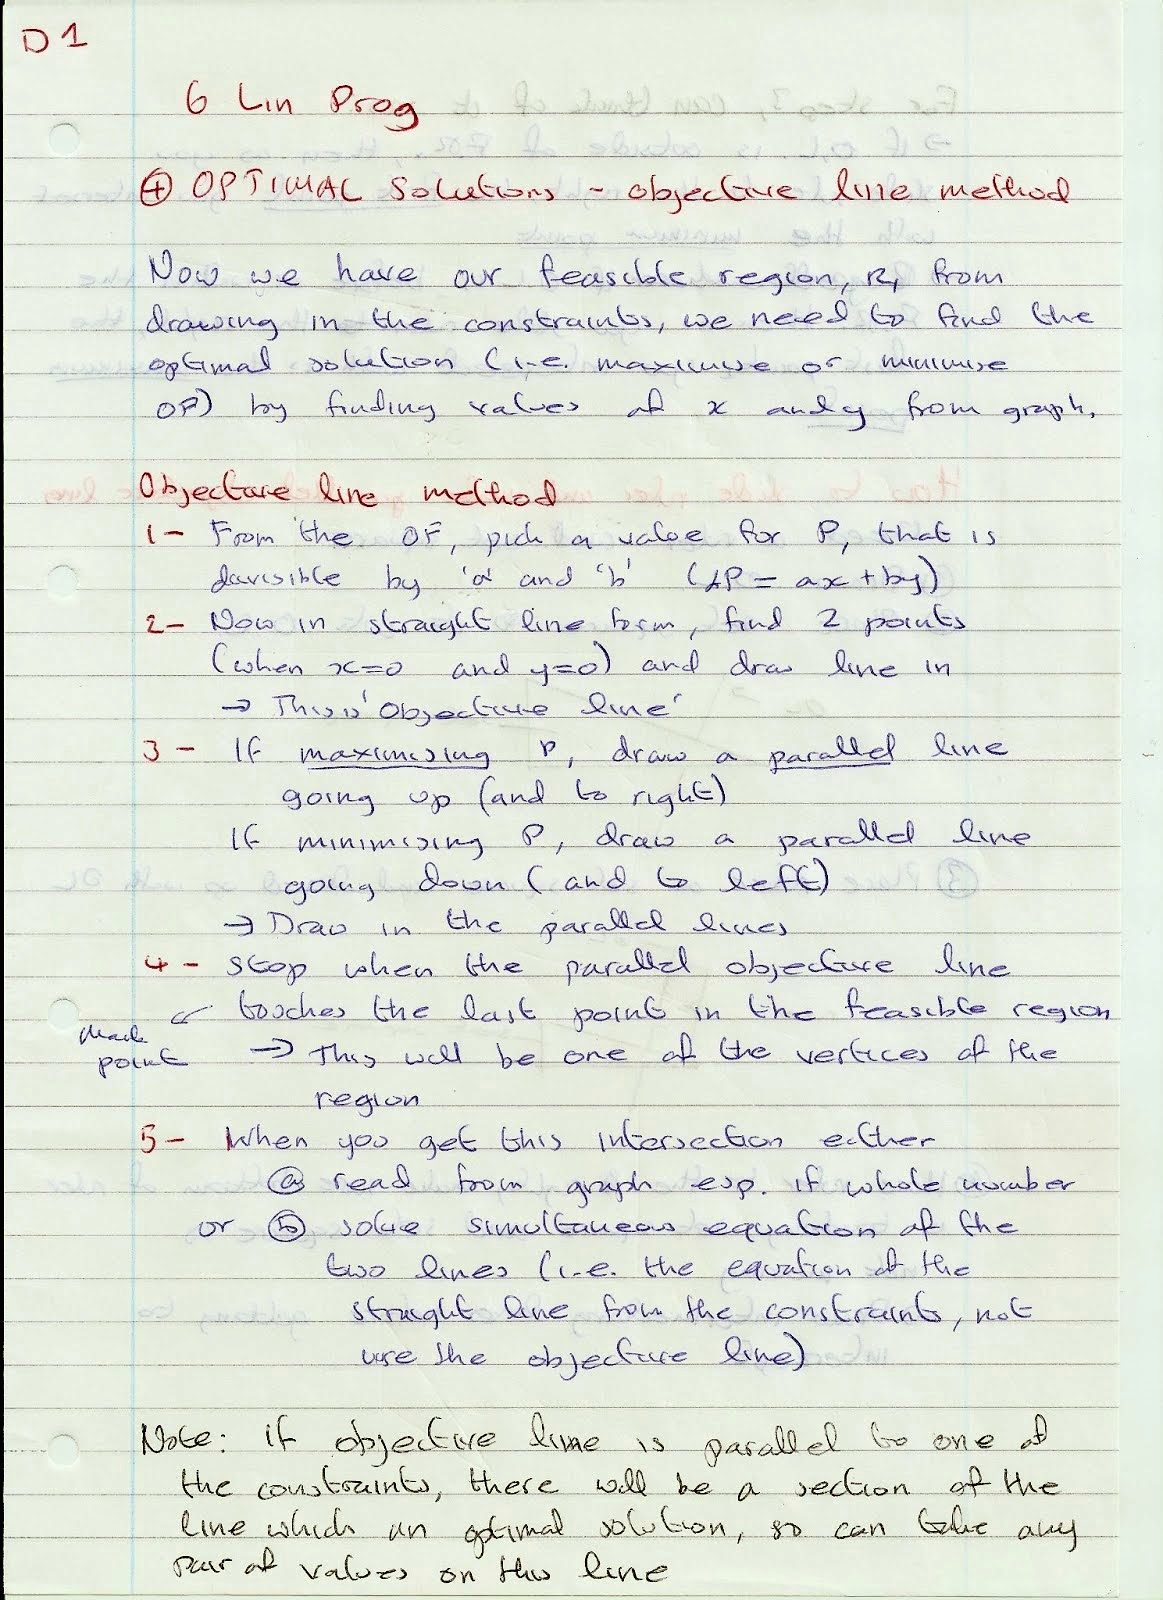 D1
6 Lin Prog
④ OPTIMAL Solutions - objective line method
Now we have our feasible region, R, from
drawing in the constraints, we need to find the
optimal solution (i.e. maximise or minimise
OF) by finding values of x and y from graph.
Objective line method
1- From the OF, pick a value for P, that is
divisible by 'a' and 'b' (P = ax + by)
2- Now in straight line form, find 2 points
(when x=0 and y=0) and draw line in
→ This is 'Objective line'
3- If maximising P, draw a parallel line
going up (and to right)
If minimising P, draw a parallel line
going down (and to left)
→ Draw in the parallel lines
4- Stop when the parallel objective line
touches the last point in the feasible region
Mark point
→ This will be one of the vertices of the
region
5- When you get this intersection either
ⓐ read from graph esp. if whole number
or ⓑ solve simultaneous equation of the
two lines (i.e. the equation of the
straight line from the constraints, not
use the objective line)
Note: if objective line is parallel to one of
the constraints, there will be a section of the
line which an optimal solution, so can take any
pair of values on this line